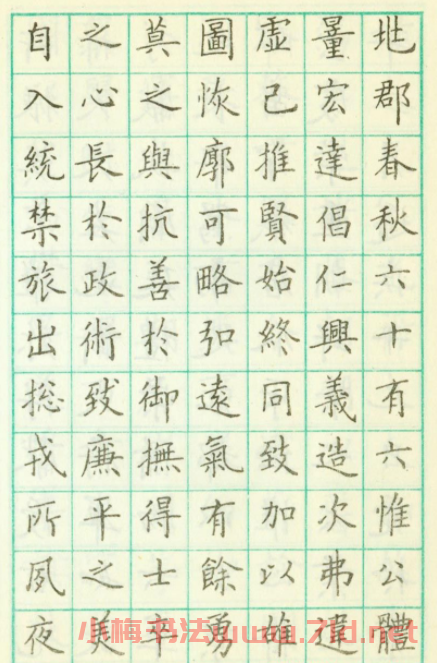 郡春秋六十有六惟公體
量宏達倡仁興義造次弗違
虛己推賢始終同致加以雄
圖恢廓可略弘遠氣有餘勇
莫之與抗善於御撫得士卒
之心長於政術致廉平之美
自入統禁旅出総戎所夙夜
小梅书法